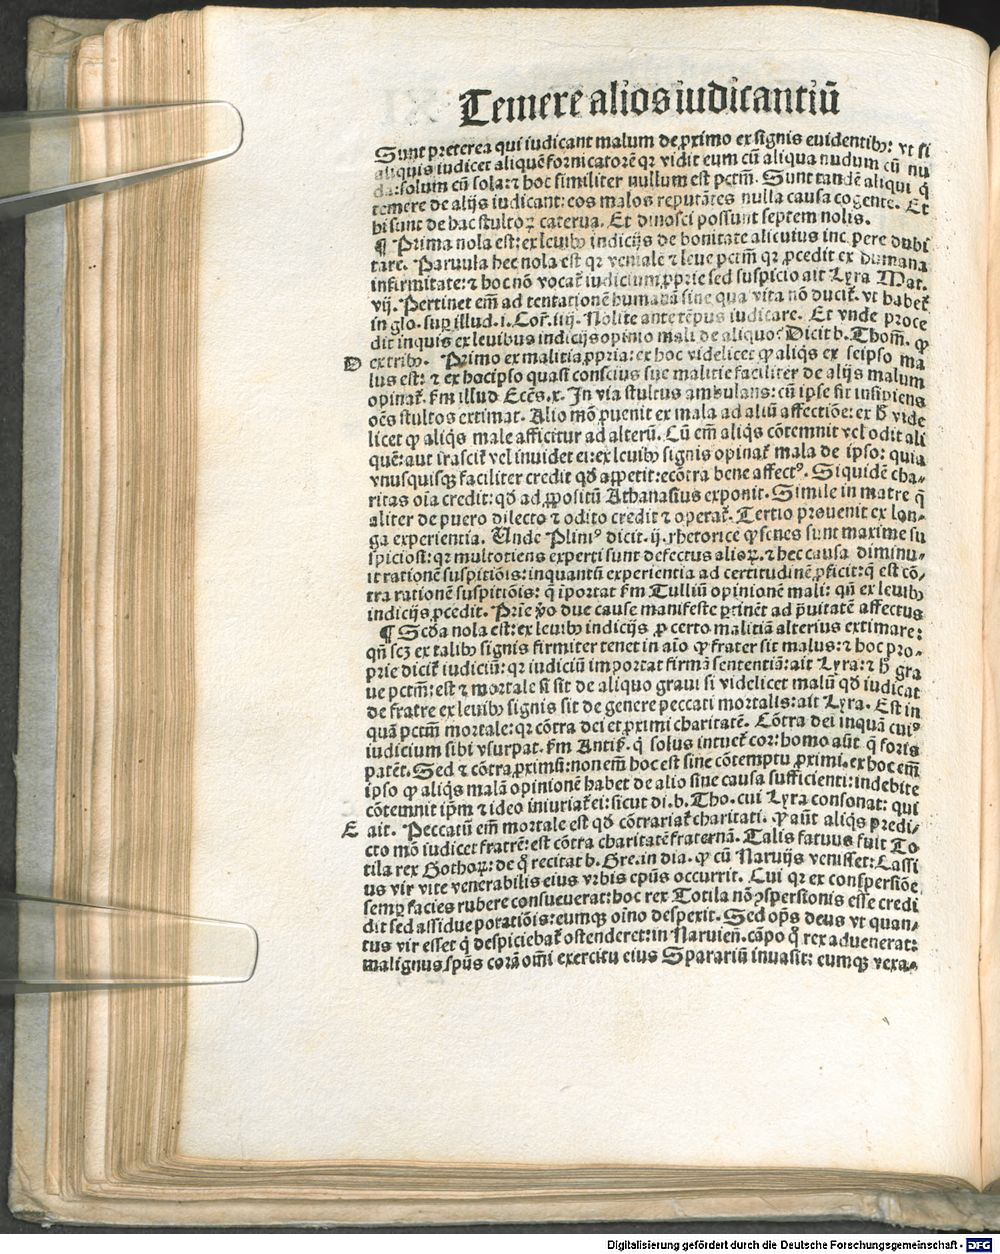 Temere alios iudicantiū
Sunt preterea qui iudicant malum de ꝓximo ex signis euidentibꝫ: vt si
aliquis iudicet aliquē fornicatorē qꝛ vidit eum cū aliqua nudum cū nu
da: solum cū sola: ⁊ hoc similiter nullum est pctm̄. Sunt tandē aliqui q̇
temere de alijs iudicant: eos malos reputātes nulla causa cogente. Et
hi sunt de hac stultoꝝ caterua. Et dinosci possunt septem nolis.
¶ Prima nola est: ex leuibꝫ indicijs de bonitate alicuius incipere dubi
tare. Paruula hec nola est qꝛ veniale ⁊ leue pctm̄ qꝛ ꝓcedit ex humana
infirmitate: ⁊ hoc nō vocat᷑ iudicium ꝓprie sed suspicio ait Lyra Mat.
vij. Pertinet em̄ ad tentationē humanā sine qua vita nō ducit᷑. vt habet᷑
in glo. suꝑ illud. i. Cor̄. iiij. Nolite ante tēpus iudicare. Et vnde proce
dit inquis ex leuibus indicijs opinio mali de aliquo? Dicit b. Thom̄. ꝙ
D ex tribꝫ. Primo ex malitia ꝓpria: ex hoc videlicet ꝙ aliq̇s ex seipso ma
lus est: ⁊ ex hoc ipso quasi conscius sue malitie faciliter de alijs malum
opinat᷑. fm̄ illud Ecc̄s. x. In via stultus ambulans: cū ipse sit insipiens
oēs stultos extimat. Alio mō ꝓuenit ex mala ad aliū affectiōe: ex hͦ vide
licet ꝙ aliq̇s male afficitur ad alterū. Cū em̄ aliq̇s cōtemnit vel odit ali
quē: aut irascit᷑ vel inuidet ei: ex leuibꝫ signis opinat᷑ mala de ipso: quia
vnusquisqꝫ faciliter credit qd̄ appetit: ecōtra bene affectꝰ. Siquidē cha⸗
ritas oīa credit: qd̄ ad ꝓpositū Athanasius exponit. Simile in matre q̄
aliter de puero dilecto ⁊ odito credit ⁊ operat᷑. Tertio prouenit ex lon⸗
ga experientia. Unde Pliniꝰ dicit. ij. rhetorice ꝙ senes sunt maxime su
spiciosi: qꝛ multotiens experti sunt defectus alioꝝ. ⁊ hec causa diminu⸗
it rationē suspitiōis: inquantū experientia ad certitudinē ꝓficit: q̄ est cō⸗
tra rationē suspitiōis: q̄ īportat fm̄ Tulliū opinionē mali: qn̄ ex leuibꝫ
indicijs ꝓcedit. Prīe ꝟo due cause manifeste ꝑtinēt ad ꝑuitatē affectus
¶ Scd̄a nola est: ex leuibꝫ indicijs ꝓ certo malitiā alterius extimare:
qn̄ scꝫ ex talibꝫ signis firmiter tenet in aīo ꝙ frater sit malus: ⁊ hoc pro⸗
prie dicit᷑ iudiciū: qꝛ iudiciū importat firmā sententiā: ait Lyra: ⁊ hͦ gra
ue pctm̄: est ⁊ mortale si sit de aliquo graui si videlicet malū qd̄ iudicat
de fratre ex leuibꝫ signis sit de genere peccati mortalis: ait Lyra. Est in
quā pctm̄ mortale: qꝛ cōtra dei et ꝓximi charitatē. Cōtra dei inquā cuiꝰ
iudicium sibi vsurpat. fm̄ Antiſ. q̇ solus intuet᷑ cor: homo aūt q̄ foris
patēt. Sed ⁊ cōtra ꝓximū: non em̄ hoc est sine cōtemptu ꝓximi. ex hoc em̄
ipso ꝙ aliq̇s malā opinionē habet de alio sine causa sufficienti: indebite
cōtemnit ipm̄ ⁊ ideo iniuriat᷑ ei: sicut di. b. Tho. cui Lyra consonat: qui
E ait. Peccatū em̄ mortale est qd̄ cōtrariat᷑ charitati. ꝙ aūt aliq̇s predi⸗
cto mō iudicet fratrē: est cōtra charitatē fraternā. Talis fatuus fuit To
tila rex Gothoꝝ: de qͦ recitat b. Gre. in dia. ꝙ cū Naruijs venisset: Cassi
us vir vite venerabilis eius vrbis ep̄us occurrit. Cui qꝛ ex consꝑsiōe
semꝑ facies rubere consueuerat: hoc rex Totila nō ꝯspersionis esse credi
dit sed assidue potatiōis: eumqꝫ oīno despexit. Sed op̄s deus vt quan⸗
tus vir esset q̇ despiciebat᷑ ostenderet: in Naruien̄. cāpo qͦ rex aduenerat:
malignus sp̄us corā om̄i exercitu eius Spatariū inuasit: eumqꝫ vexa⸗
Digitalisierung gefördert durch die Deutsche Forschungsgemeinschaft - DFG